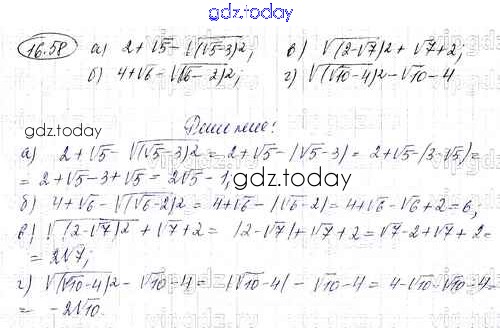 gdz.today
16.58 а) 2+√5-√(√5-3)²; в) √(2-√7)²+√7+2;
б) 4+√6-√(√6-2)²; г) √(√10-4)²-√10-4
gdz.today
Решение:
а) 2+√5-√(√5-3)² = 2+√5-|√5-3| = 2+√5-|3-√5| =
= 2+√5-3+√5 = 2√5-1;
gdz.today
б) 4+√6-√(√6-2)² = 4+√6-|√6-2| = 4+√6-√6+2 = 6;
в) √(2-√7)²+√7+2 = |2-√7|+√7+2 = √7-2+√7+2 =
= 2√7;
г) √(√10-4)²-√10-4 = |√10-4|-√10-4 = 4-√10-√10-4 =
= -2√10.
gdz.today